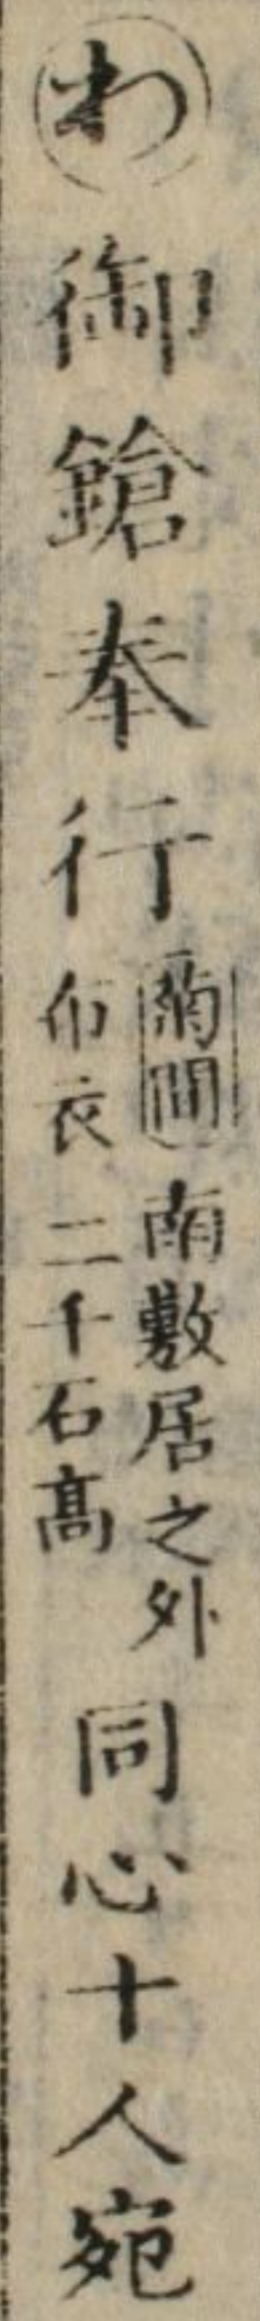 わ御鎗奉行
菊間南敷居之外
布衣二千石高
同心十人宛